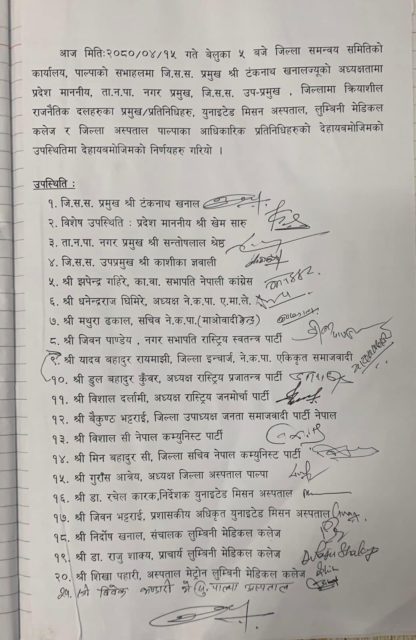 आज मितिः२०८०/०४/१५ गते बेलुका ५ बजे जिल्ला समन्वय समितिको
कार्यालय, पाल्पाको सभाहलमा जि.स.स. प्रमुख श्री टंकनाथ खनालज्यूको अध्यक्षतामा
प्रदेश माननीय, ता.न.पा. नगर प्रमुख, जि.स.स. उप-प्रमुख , जिल्लामा क्रियाशील
राजनैतिक दलहरुका प्रमुख/प्रतिनिधिहरु, युनाइटेड मिसन अस्पताल, लुम्विनी मेडिकल
कलेज र जिल्ला अस्पताल पाल्पाका आधिकारिक प्रतिनिधिहरुको देहायबमोजिमको
उपस्थितिमा देहायबमोजिमको निर्णयहरु गरियो ।
उपस्थिति :
१. जि.स.स. प्रमुख श्री टंकनाथ खनाल
२. विशेष उपस्थिति : प्रदेश माननीय श्री खेम सारु
३. ता.न.पा. नगर प्रमुख श्री सन्तोषलाल श्रेष्ठ
४. जि.स.स. उपप्रमुख श्री काशीका ज्ञवाली
५. श्री झपेन्द्र गहिरे, का.वा. सभापति नेपाली कांग्रेस
६. श्री धनेन्द्रराज घिमिरे, अध्यक्ष ने.क.पा. ए.माले.
७. श्री मथुरा ढकाल, सचिव ने.क.पा.(माओवादी केन्द्र)
८. श्री जिवन पाण्डेय , नगर सभापति राष्ट्रिय स्वतन्त्र पार्टी
९. श्री यादव बहादुर रायमाझी, जिल्ला इन्चार्ज, ने.क.पा. एकिकृत समाजवादी
१०. श्री डुल बहादुर कुँवर, अध्यक्ष राष्ट्रिय प्रजातन्त्र पार्टी
११. श्री विशाल दर्लामी, अध्यक्ष राष्ट्रिय जनमोर्चा पार्टी
१२. श्री बैकुण्ठ भट्टराई, जिल्ला उपाध्यक्ष जनता समाजवादी पार्टी नेपाल
१३. श्री विशाल सी नेपाल कम्युनिस्ट पार्टी
१४. श्री मिन बहादुर सी, जिल्ला सचिव नेपाल कम्युनिस्ट पार्टी
१५. श्री गुराँस आत्रेय, अध्यक्ष जिल्ला अस्पताल पाल्पा
१६. श्री डा. रचेल कारक,निर्देशक युनाइटेड मिसन अस्पताल
१७. श्री जिवन भट्टराई, प्रशासकीय अधिकृत युनाइटेड मिसन अस्पताल
१८. श्री निर्दोष खनाल, संचालक लुम्विनी मेडिकल कलेज
१९. श्री डा. राजु शाक्य, प्राचार्य लुम्विनी मेडिकल कलेज
२०. श्री शिखा पहारी, अस्पताल मेट्रोन लुम्विनी मेडिकल कलेज
२१. श्री विवेक भण्डारी पाल्पा अस्पताल